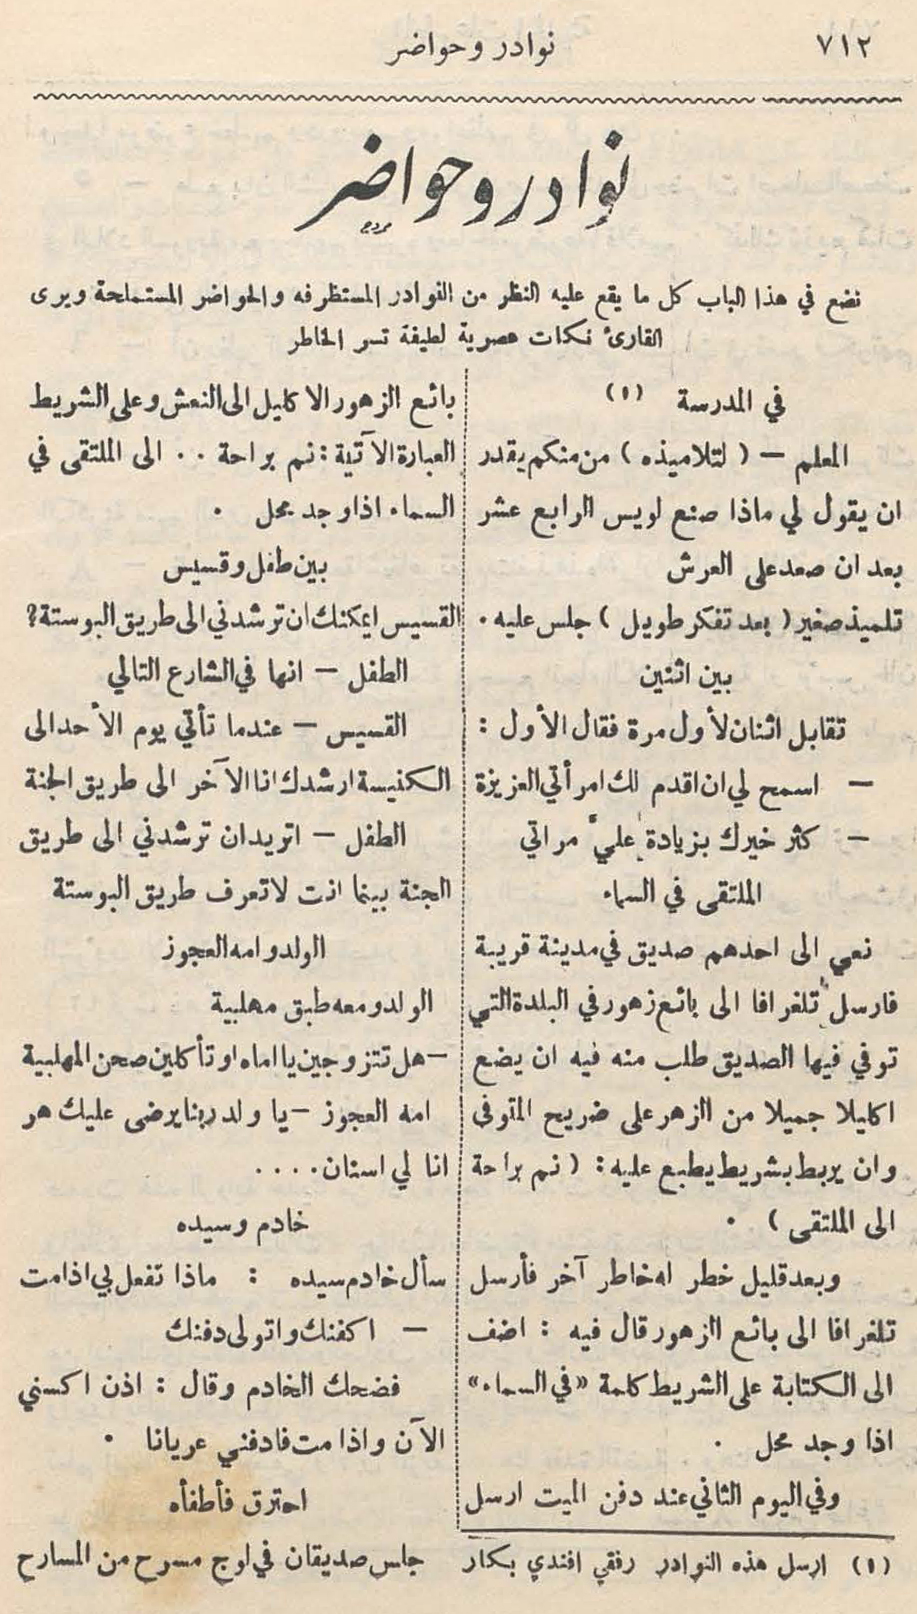 ٧١٢
نوادر وحواضر
نوادر وحواضر
نضع في هذا الباب كل ما يقع عليه النظر من النوادر المستظرفه والحواضر المستملحة ويرى
القارئ نكات عصرية لطيفة تسر الخاطر
في المدرسة (١)
المعلم – ( لتلاميذه ) من منكم يقدر
ان يقول لي ماذا صنع لويس الرابع عشر
بعد ان صعد على العرش
تلميذ صغير ( بعد تفكر طويل ) جلس عليه .
بين اثنين
تقابل اثنان لأول مرة فقال الأول :
– اسمح لي ان اقدم لك امرأتي العزيزة
– كثر خيرك بزيادة علي مراتي
الملتقى في السماء
نعي الى احدهم صديق في مدينة قريبة
فارسل تلغرافا الى بائع زهور في البلدة التي
توفي فيها الصديق طلب منه فيه ان يضع
اكليلا جميلا من الزهر على ضريح المتوفى
وان يربط بشريط يطبع عليه : ( نم براحة
الى الملتقى ) .
وبعد قليل خطر له خاطر آخر فأرسل
تلغرافا الى بائع الزهور قال فيه : اضف
الى الكتابة على الشريط كلمة «في السماء»
اذا وجد محل .
وفي اليوم الثاني عند دفن الميت ارسل
(١) ارسل هذه النوادر رفقي افندي بكار
بائع الزهور الاكليل الى النعش وعلى الشريط
العبارة الآتية : نم براحة . . الى الملتقى في
السماء اذا وجد محل .
بين طفل وقسيس
القسيس ايمكنك ان ترشدني الى طريق البوستة؟
الطفل – انها في الشارع التالي
القسيس – عندما تأتي يوم الأحد الى
الكنيسة ارشدك انا الآخر الى طريق الجنة
الطفل – اتريد ان ترشدني الى طريق
الجنة بينما انت لا تعرف طريق البوستة
الولد وامه العجوز
الولد ومعه طبق مهلبية
– هل تتزوجين يا اماه او تأكلين صحن المهلبية
امه العجوز – يا ولد ربنا يرضى عليك هو
انا لي اسنان . . . .
خادم وسيده
سأل خادم سيده : ماذا تفعل بي اذا مت
– اكفنك واتولى دفنك
فضحك الخادم وقال : اذن اكسني
الآن واذا مت فادفني عريانا .
احترق فأطفأه
جلس صديقان في اوج مسرح من المسارح